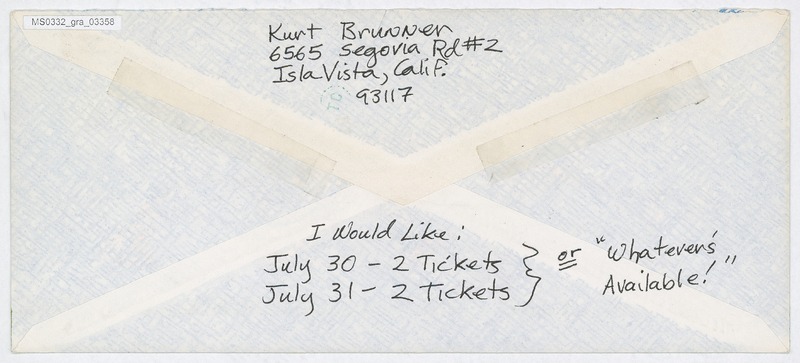 MS0332_gra_03358
Kurt Brunner
6565 Segovia Rd #2
Isla Vista, Calif.
93117
TO
I Would Like:
July 30 - 2 Tickets
July 31 - 2 Tickets
or "Whatever's
Available!"